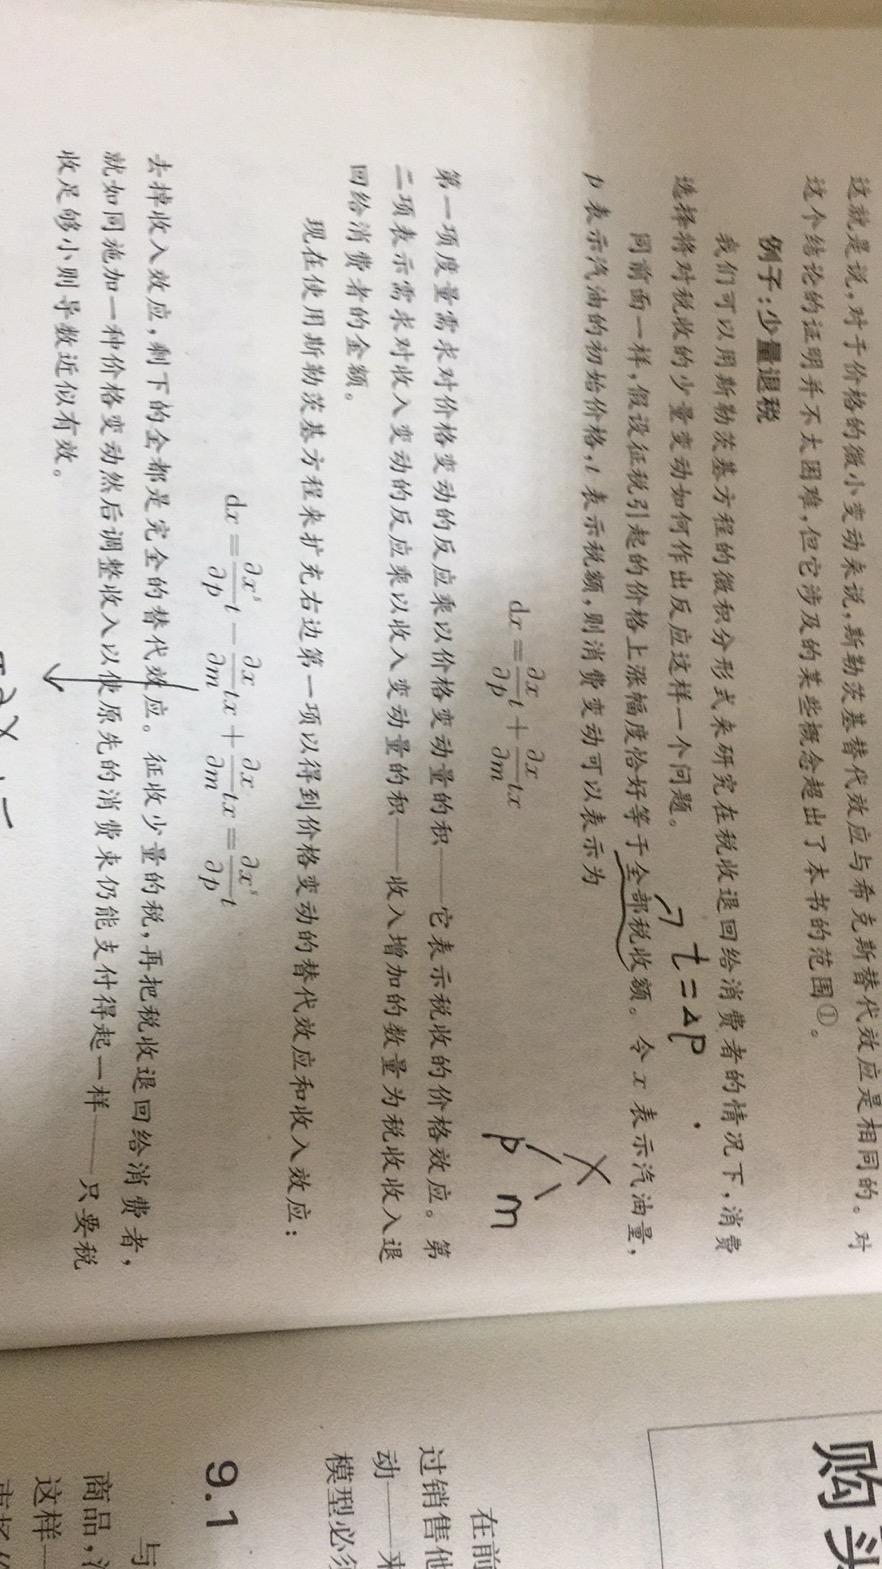 这就是说,对于价格的微小变动来说,斯勒茨基替代效应与希克斯替代效应是相同的。对
这个结论的证明并不太困难,但它涉及的某些概念超出了本书的范围①。
例子:少量退税
我们可以用斯勒茨基方程的微积分形式来研究在税收退回给消费者的情况下,消费
选择将对税收的少量变动如何作出反应这样一个问题。
t=Δp
同前面一样,假设征税引起的价格上涨幅度恰好等于全部税收额。令 x 表示汽油量,
p 表示汽油的初始价格,t 表示税额,则消费变动可以表示为
x
p m
dx = ∂x/∂p t + ∂x/∂m tx
第一项度量需求对价格变动的反应乘以价格变动量的积——它表示税收的价格效应。第
二项表示需求对收入变动的反应乘以收入变动量的积——收入增加的数量为税收收入退
回给消费者的金额。
现在使用斯勒茨基方程来扩充右边第一项以得到价格变动的替代效应和收入效应:
dx = ∂xˢ/∂p t − ∂x/∂m tx + ∂x/∂m tx = ∂xˢ/∂p t
去掉收入效应,剩下的全都是完全的替代效应。征收少量的税,再把税收退回给消费者,
就如同施加一种价格变动然后调整收入以使原先的消费束仍能支付得起一样——只要税
收足够小则导数近似有效。
购买
在前
过销售他
动——来
模型必须
9.1
与
商品,
这样—